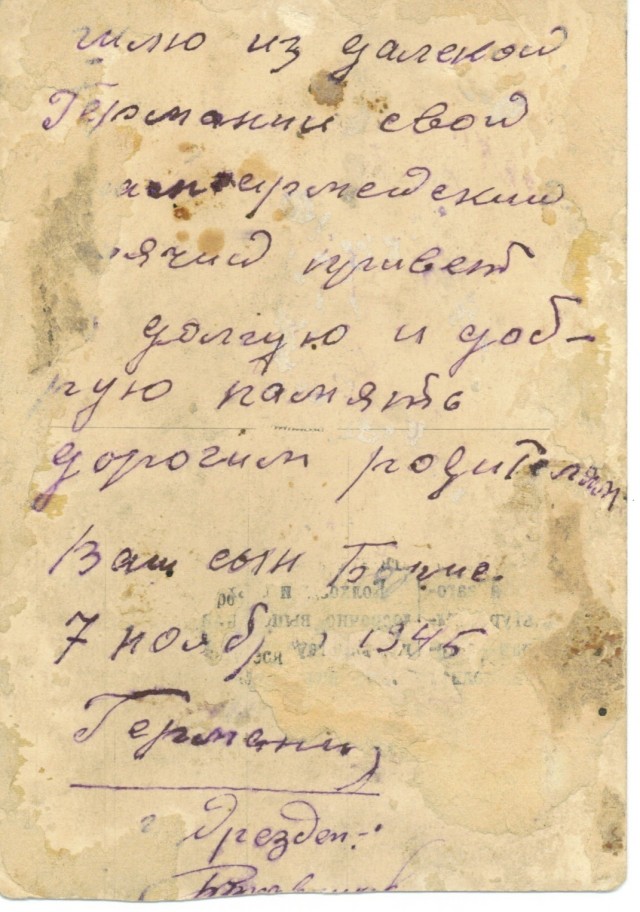 шлю из далекой
Германии свой
гвардейский
горячий привет
долгую и доб-
рую память
дорогим родителям
Ваш сын Борис.
7 ноября 1945
Германия
г Дрезден.